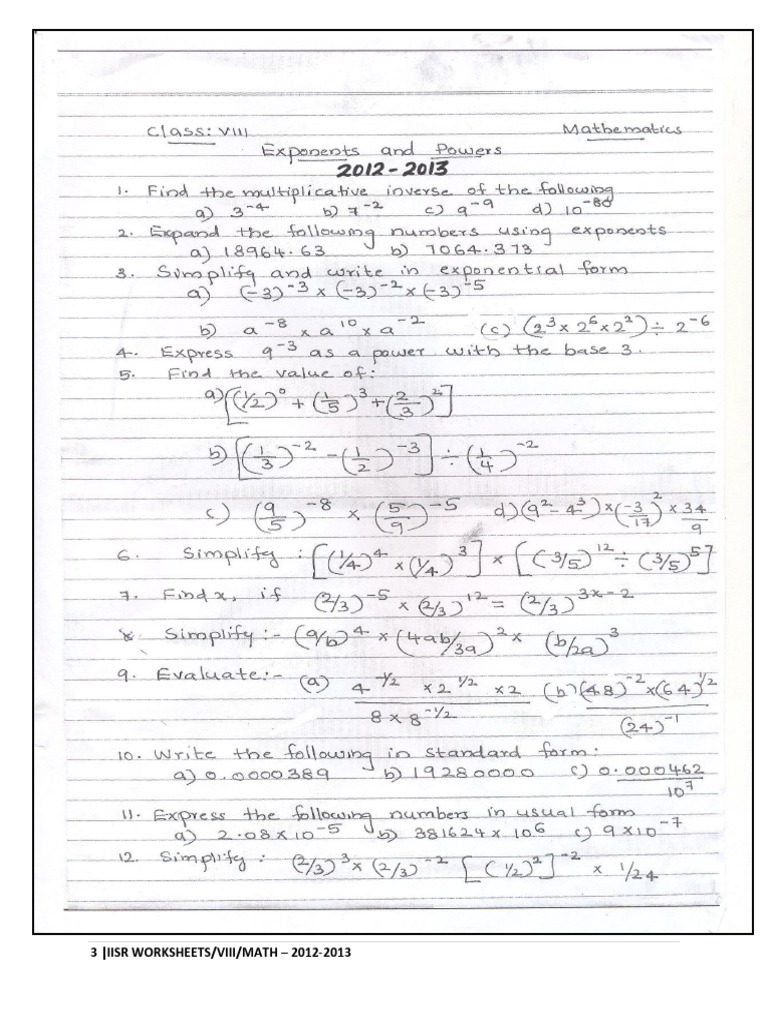 Class: VIII Mathematics
Exponents and Powers
2012-2013
1. Find the multiplicative inverse of the following
a) 3⁻⁴ b) 7⁻² c) 9⁻⁹ d) 10⁻⁸⁰
2. Expand the following numbers using exponents
a) 18964.63 b) 7064.373
3. Simplify and write in exponential form
a) (-3)⁻³ × (-3)⁻² × (-3)⁻⁵
b) a⁻⁸ × a¹⁰ × a⁻² (c) (2³ × 2⁶ × 2²) ÷ 2⁻⁶
4. Express 9⁻³ as a power with the base 3.
5. Find the value of:
a) [(1/2)⁰ + (1/5)³ + (2/3)²]
b) [(1/3)⁻² - (1/2)⁻³] ÷ (1/4)⁻²
c) (9/5)⁻⁸ × (5/9)⁻⁵ d) (9² - 4³) × (-3/17)² × 34/9
6. Simplify : [(1/4)⁴ × (1/4)³] × [(3/5)¹² ÷ (3/5)⁵]
7. Find x, if (2/3)⁻⁵ × (2/3)¹² = (2/3)³ˣ⁻²
Simplify :- (a/b)⁴ × (4ab/3a)² × (b/2a)³
9. Evaluate:- (a) 4^-1/2 × 2^1/2 × 2 (b) (48)⁻² × (64)^1/2
8 × 8^-1/2 (24)⁻¹
10. Write the following in standard form:
a) 0.0000389 b) 19280000 c) 0.000462
10⁷
11. Express the following numbers in usual form
a) 2.08×10⁻⁵ b) 381624 × 10⁶ c) 9×10⁻⁷
12. Simplify : (2/3)³ × (2/3)⁻² [(1/2)²]⁻² × 1/24
3 |IISR WORKSHEETS/VIII/MATH – 2012-2013